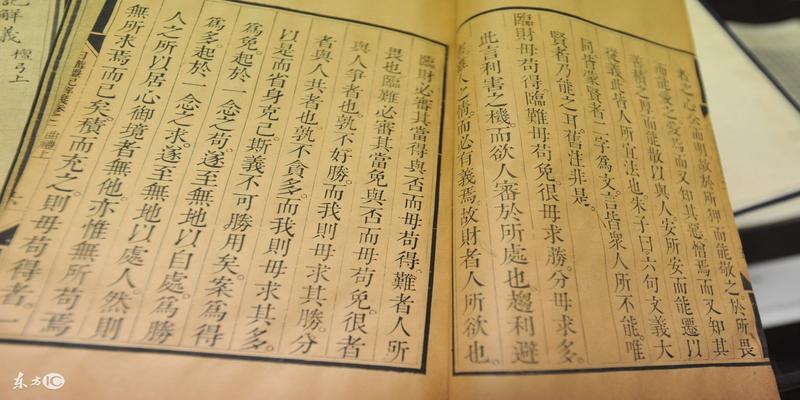 者之心公而明故於所狎而能敬之於所畏
而能愛之愛焉而又知其惡憎焉而又知其
善積之厚而能散以與人安所安而能遷以
從義此皆人所宜法也朱子曰六句文義大
同皆蒙賢者二字爲文言皆衆人所不能唯
賢者乃能之耳舊注非是。
臨財毋苟得臨難毋苟免很毋求勝。分毋求多。
此言利害之機而欲人審於所處也趨利避
人之情。而必有義焉。故財者人所欲也。
臨財必審其當得與否而毋苟得。難者人所
畏也臨難必審其當免與否而毋苟免。很者
與人爭者也。孰不好勝。而我則毋求其勝。分
者與人共者也孰不貪多。而我則毋求其多。
以是而省身克己。斯義不可勝用矣。案爲得
爲免。起於一念之苟。遂至無地以自處。爲勝
爲多。起於一念之求。遂至無地以處人然則
人之所以居心御境者無他。亦惟無所苟焉
無所求焉而已矣。積而充之。則毋苟得者。一
曲禮上
記解義 檀弓上
东方IC